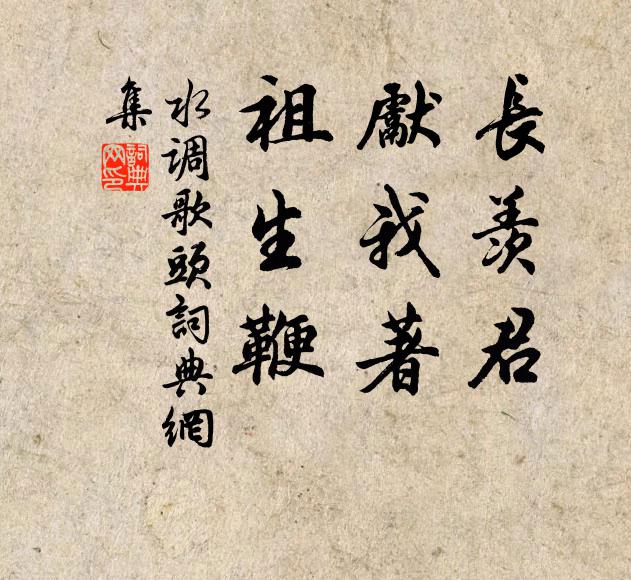 長羨君
獻我著
祖生鞭
水调歌頭詞典網
集
詞典網印